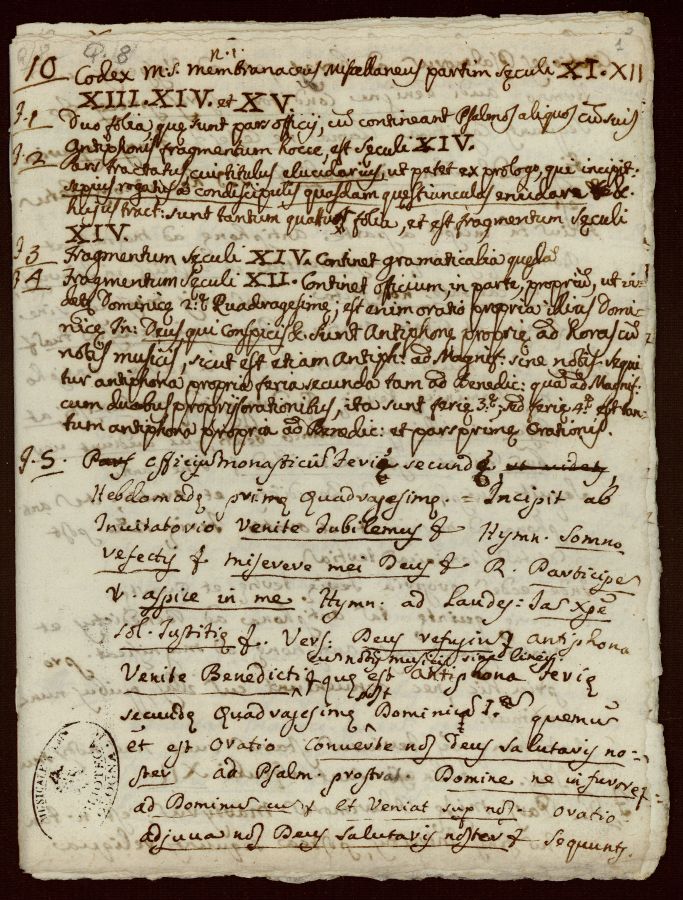 Q. 8
1
n. 1.
10 Codex m.s. membranaceus Miscellaneus partim sęculi XI. XII
XIII. XIV. et XV.
J. 1 Duo folia, que sunt pars officij, cū contineant Psalmos aliquos cū suis
Antiphonis fragmentum hocce, est sęculi XIV.
J. 2 Pars tractatus, cui titulus elucidarius, ut patet ex prologo, qui incipit:
sępius rogatus à condiscipulis quasdam questiunculas enodare &c.
huius tract: sunt tantum quattuor folia, et est fragmentum sęculi
XIV.
J 3 Fragmentum sęculi XIV. Continet gramaticalia quędā
J 4 Fragmentum sęculi XII. Continet officium, in parte, propriū, ut
Dominicę 2.ę Quadragesimę; est enim oratio propria illius Domi-
nicę In: Deus qui Conspicis &. sunt Antiphonę proprię ad horas cū
notis musicis, sicut est etiam Antiph: ad Magnif: sine notis. sequi
tur antiphona propria feria secunda tam ad Benedic: quā ad Magnif:
cum duobus proprijs orationibus, ita sunt ferię 3.ę, sed ferię 4.ę est tan-
tum antiphona propria ad Benedic: et pars primę Orationis.
J. 5. Pars officij monasticū Ferię secundę ut videt,
Hebdomadę primę Quadragesimę. = Incipit ab
Invitatorio Venite Iubilemus & Hymn. Somno
refectis & miserere mei Deus & R. Participē
V. aspice in me. Hymn: ad Laudes: Iā Xpē
sol. Iustitię &. Vers: Deus refugiū & antiphona
cum notis musicis sine lineis.
Venite Benedicti & quę est Antiphona Ferię
secundę Quadragesimę Dominicā I.ā quemus
et est Oratio Converte nos Deus salutaris no-
ster ad Psalm. prostrat. Domine ne in furore &
ad Dominū cū & et Veniat sup nos. Oratio
adjuva nos Deus salutaris noster & sequunt